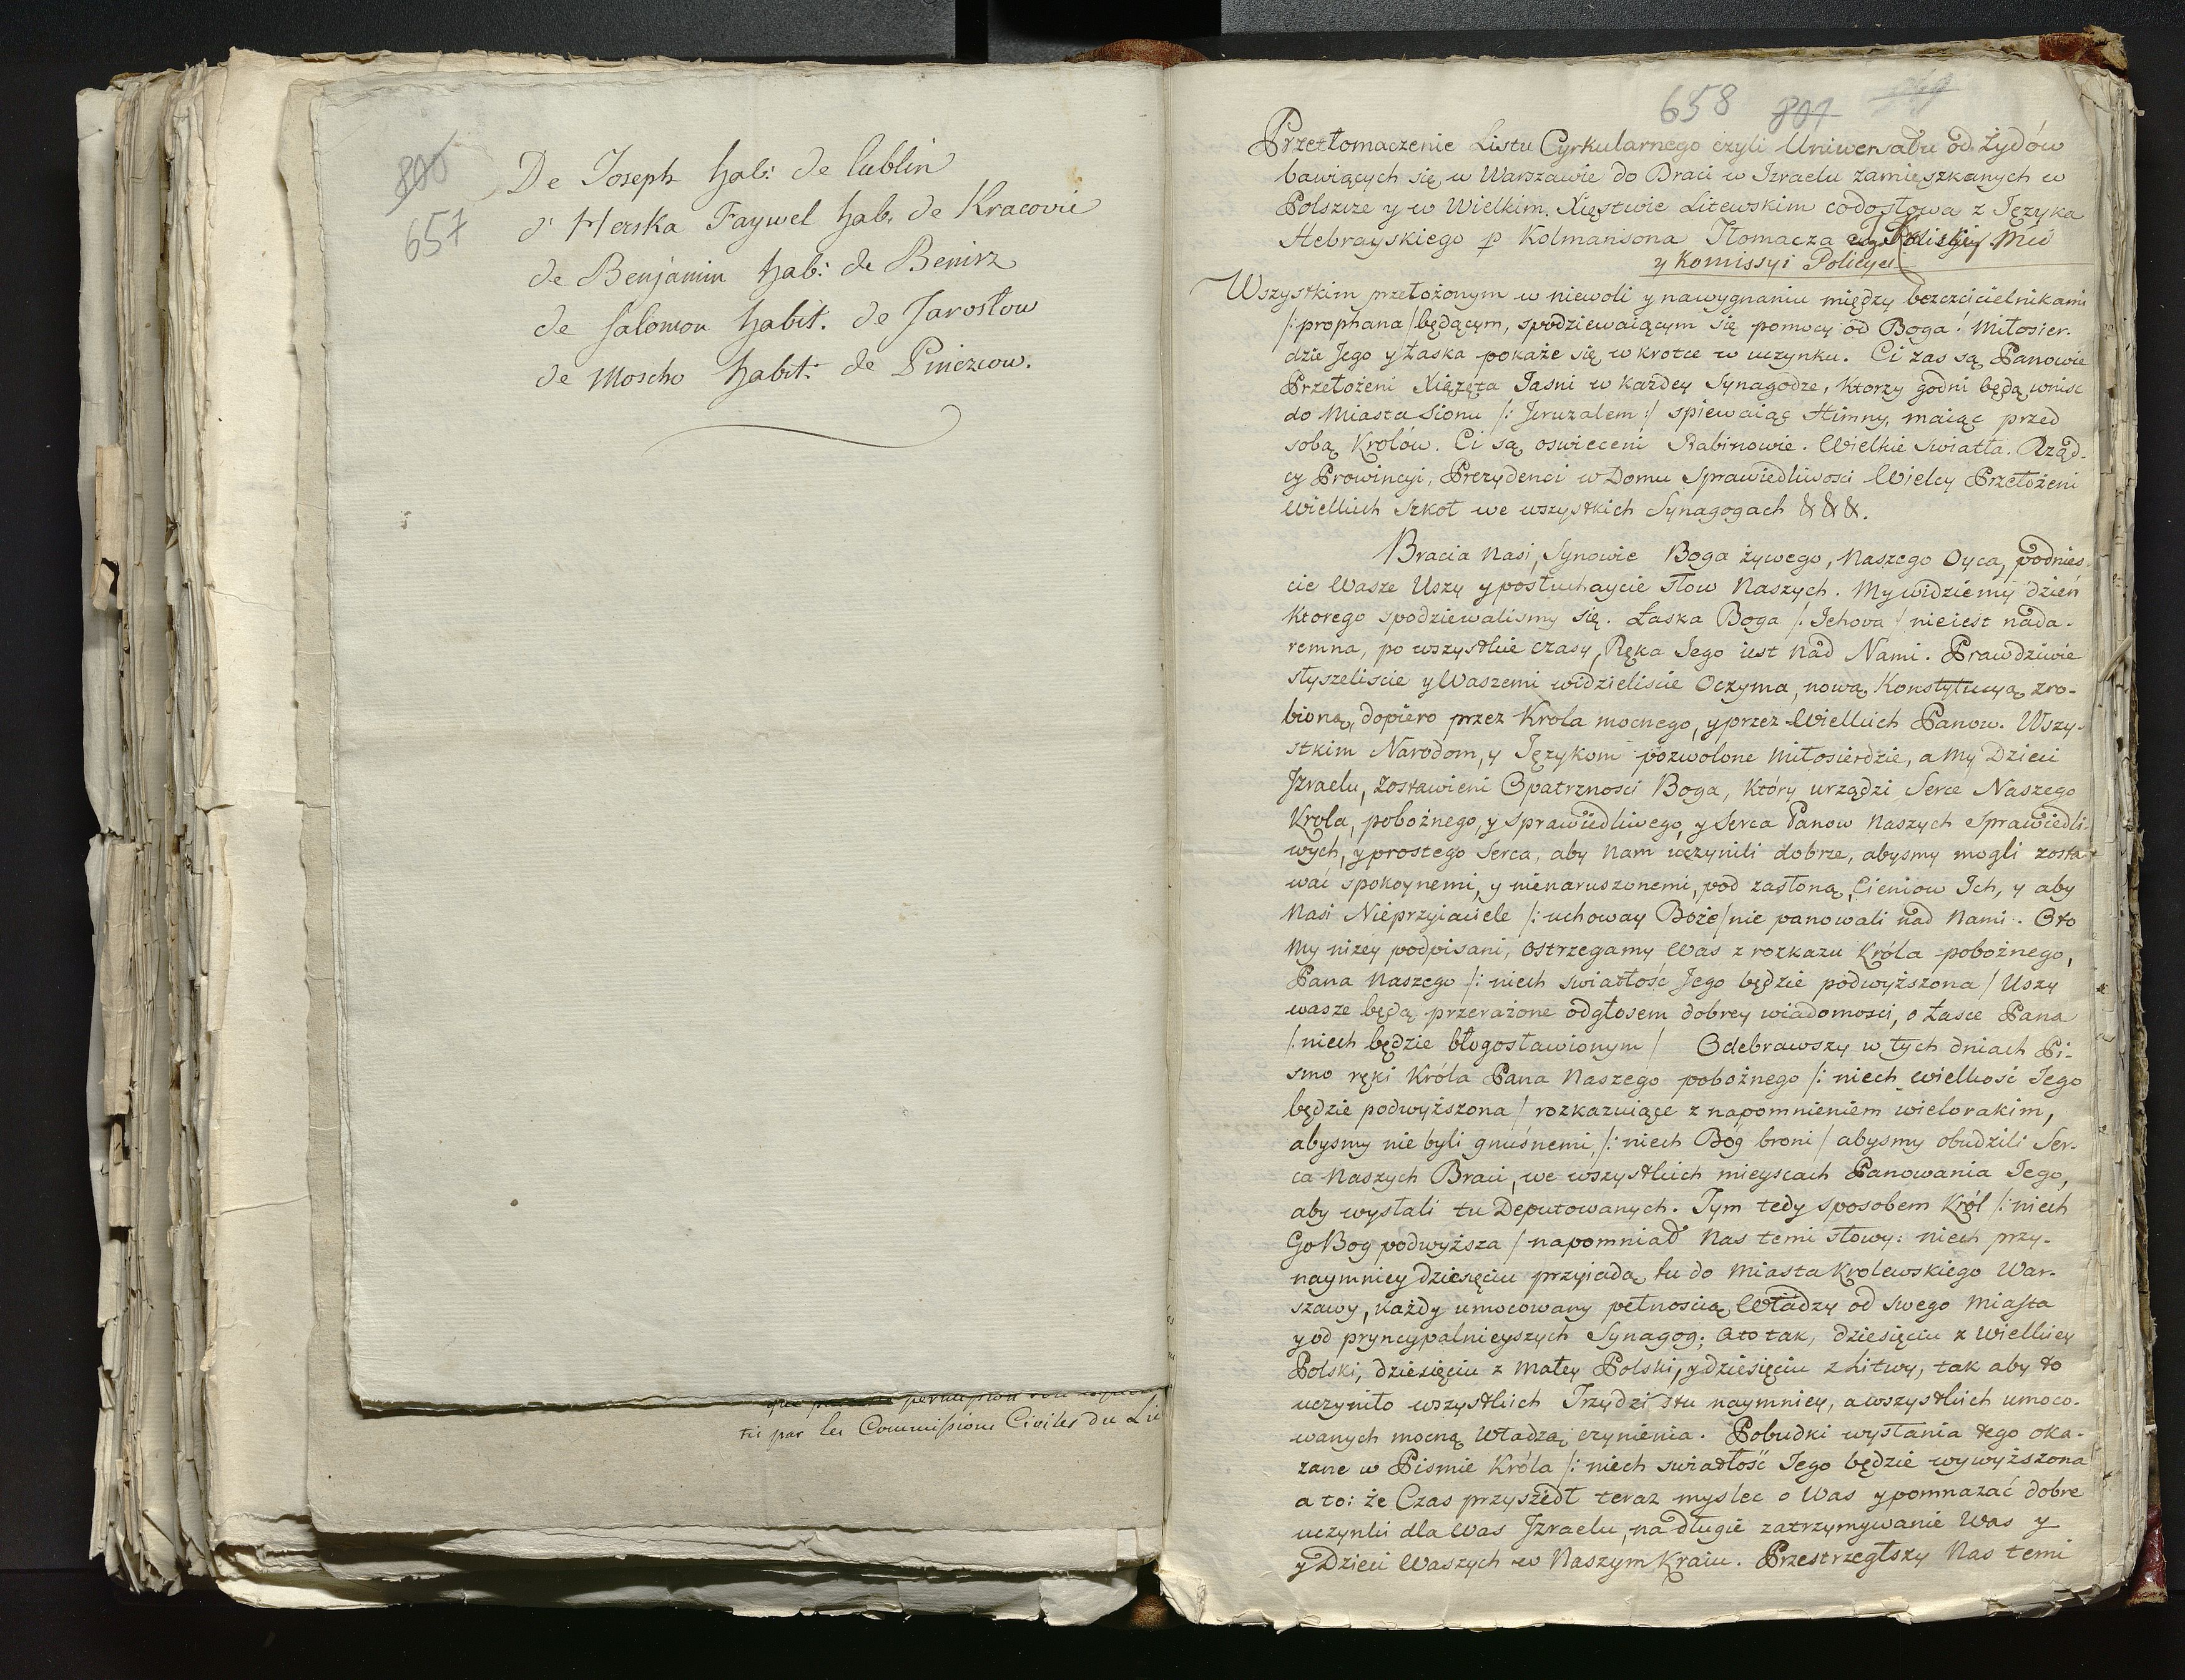 800
657
De Joseph hab: de Lublin
d'Herska Faywel hab. de Kracovie
de Benjamin hab: de Benirz
de Salomon habit. de Jarosłow
de Moscho habit: de Pinczow.
tis par les Commissions Civiles du Li
658 801
Przetłomaczenie Listu Cyrkularnego czyli Uniwersału od Żydów
bawiących się w Warszawie do Braci w Izraelu zamieszkanych w
Polszcze y w Wielkim Xięstwie Litewskim co do słowa z Języka
Hebrayskiego p Kolmansona Tłomacza
y Komissyi Policyi
Wszystkim przełożonym w niewoli y na wygnaniu między bezczcicielnikami
/: prophana / będącym, spodziewaiącym się pomocy od Boga! Miłosier-
dzie Jego y Łaska pokaże się w krotce w uczynku. Ci zas są Panowie
Przełożeni Xiążęta Jasni w każdey Synagodze, ktorzy godni będą wniść
do Miasta Sionu /: Jeruzalem :/ spiewaiąc Himny, maiąc przed
sobą Krolów. Ci są oswieceni Rabinowie. Wielkie Swiatła. Rząd-
cy Prowincyi, Prezydenci w Domu Sprawiedliwosci Wielcy Przełożeni
Wielkich Szkoł we wszystkich Synagogach & & &.
Bracia Nasi, Synowie Boga żywego, Naszego Oyca, podnies-
cie Wasze Uszy y posłuchaycie słow Naszych. My widziemy dzień
ktorego spodziewalismy się. Łaska Boga /: Jehova / nieiest nada-
remna, po wszystkie czasy, Ręka Jego iest nad Nami. Prawdziwie
słyszeliscie y Waszemi widzieliscie Oczyma, nową Konstytucyą zro-
bioną, dopiero przez Krola mocnego, y przez Wielkich Panow. Wszy-
stkim Narodom, y Językom pozwolone Miłosierdzie, a My Dzieci
Izraelu, zostawieni Opatrznosci Boga, Który urządzi Serce Naszego
Krola, pobożnego, y sprawiedliwego, y Serca Panow Naszych sprawiedli-
wych, y prostego Serca, aby Nam uczynili dobrze, abysmy mogli zosta-
wać spokoynemi, y nienaruszonemi, pod zasłoną Cieniow Ich, y aby
Nasi Nieprzyiaciele /: uchoway Boże / nie panowali nad Nami. Oto
My niżey podpisani, ostrzegamy Was z rozkazu Króla pobożnego,
Pana Naszego /: niech swiatłość Jego będzie podwyższona / Uszy
wasze będą przerażone odgłosem dobrey wiadomosci, o Łasce Pana
/: niech będzie błogosławionym / Odebrawszy w tych dniach Pi-
smo ręki Króla Pana Naszego pobożnego /: niech wielkość Jego
będzie podwyższona / rozkazuiące z napomnieniem wielorakim,
abysmy nie byli gnuśnemi, /: niech Bóg broni / abysmy obudzili Ser-
ca Naszych Braci, we wszystkich mieyscach Panowania Jego,
aby wysłali tu Deputowanych. Tym tedy sposobem Król /: niech
Go Bog podwyższa / napomniał Nas temi słowy: niech przy-
naymniey dziesięciu przyiadą tu do Miasta Krolewskiego War-
szawy, każdy umocowany pełnoscią Władzy od swego Miasta
y od pryncypalnieyszych Synagog; oto tak, dziesięciu z Wielkiey
Polski, dziesięciu z Małey Polski, y dziesięciu z Litwy, tak aby to
uczyniło wszystkich Trzydziestu naymniey, a wszystkich umoco-
wanych mocną Władzą czynienia. Pobudki wysłania tego oka-
zane w Pismie Króla /: niech swiatłość Jego będzie wywyższona
a to: że Czas przyszedł teraz myslec o Was y pomnażać dobre
uczynki dla Was Izraelu, na długie zatrzymywanie Was y
y Dzieci Waszych w Naszym Kraiu. Przestrzegłszy Nas temi